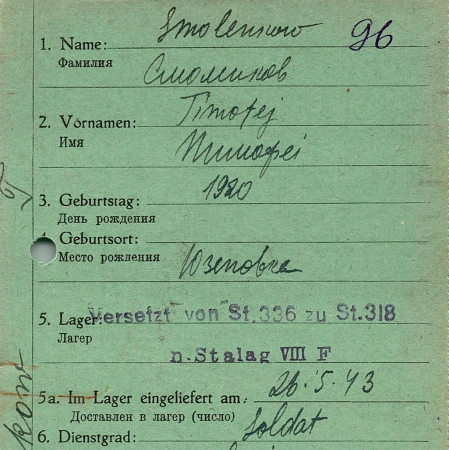 Smolenkow
1. Name: 96
Фамилия
Смоленков
Timofej
2. Vornamen:
Имя
Тимофеi
1920
3. Geburtstag:
День рождения
4. Geburtsort:
Место рождения Юзеповка
5. Lager: Versetzt von St.336 zu St.318
Лагерь
n. Stalag VIII F
5a. Im Lager eingeliefert am: 26.5.43
Доставлен в лагерь (число)
Soldat
6. Dienstgrad:
kow